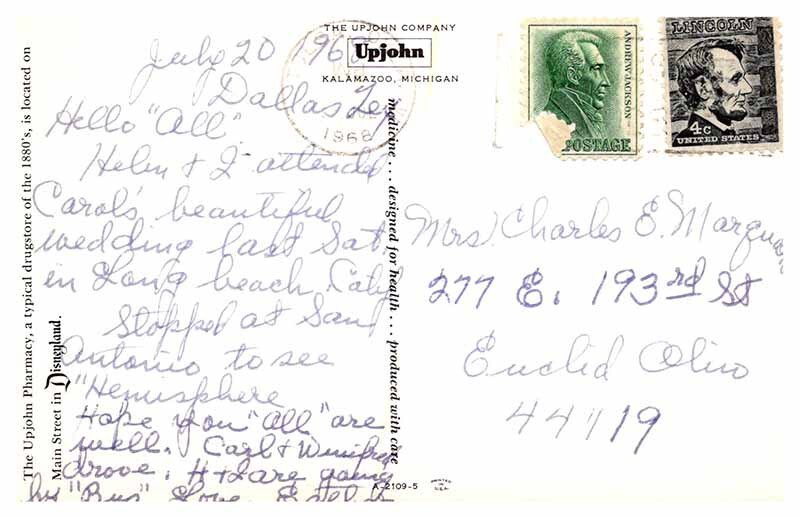 THE UPJOHN COMPANY
Upjohn
KALAMAZOO, MICHIGAN
July 20 1968
Dallas Tex
Hello "All"
Helen & I attended
Carol's beautiful
wedding last Sat.
in Long beach. Calif
Stopped at San
Antonio to see
"Hemisphere
Hope you "All" are
well. Carl & Winifred
drove. H & I are going
by "Bus" Love
The Upjohn Pharmacy, a typical drugstore of the 1880's, is located on
Main Street in Disneyland.
medicine... designed for health... produced with care
1968
ANDREW JACKSON
POSTAGE
LINCOLN
4c
UNITED STATES
Mrs. Charles E.
277 E. 193rd St
Euclid Ohio
44119
A-2109-5
PRINTED
IN U.S.A.